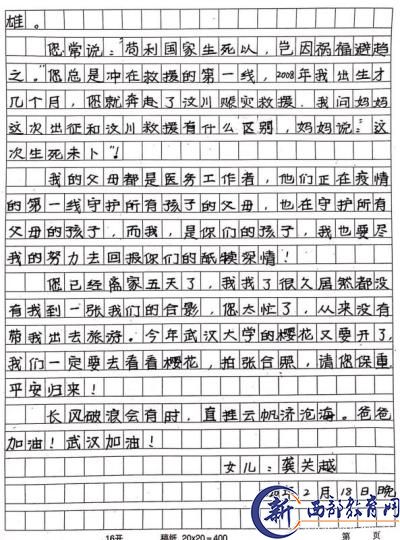 雄。
您常说:“苟利国家生死以,岂因祸福避趋
之。”您总是冲在救援的第一线,2008年我出生才
几个月,您就奔赴了汶川赈灾救援。我问妈妈
这次出征和汶川救援有什么区别,妈妈说:“这
次生死未卜”!
我的父母都是医务工作者,他们正在疫情
的第一线守护所有孩子的父母,也在守护所有
父母的孩子,而我,是你们的孩子,我也要尽
我的努力去回报你们的舐犊深情!
您已经离家五天了,我找了很久居然都没
有找到一张我们的合影,您太忙了,从来没有
带我出去旅游。今年武汉大学的樱花又要开了,
我们一定要去看看樱花,拍张合照,请您保重
平安归来!
长风破浪会有时,直挂云帆济沧海。爸爸
加油!武汉加油!
女儿:龚关越
2月18日晚
16开 稿纸 20×20=400 第 页
新 西部教育网